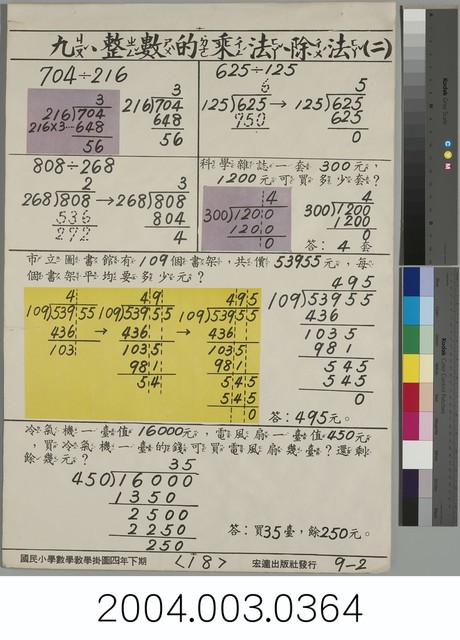 九、整數的乘法、除法(二)
704÷216
3
216)704
216×3…648
56
3
216)704
648
56
625÷125
6
125)625
750
→
5
125)625
625
0
808÷268
2
268)808
536
272
→
3
268)808
804
4
科學雜誌一套300元，
1200元可買多少套？
4
300)1200
1200
0
4
300)1200
1200
0
答：4套
市立圖書館有109個書架，共價53955元，每
個書架平均要多少元？
4
109)53955
436
103
→
49
109)53955
436
1035
981
54
→
495
109)53955
436
1035
981
545
545
0
495
109)53955
436
1035
981
545
545
0
答：495元。
冷氣機一臺值16000元，電風扇一臺值450元
，買冷氣機一臺的錢可買電風扇幾臺？還剩
餘幾元？
35
450)16000
1350
2500
2250
250
答：買35臺，餘250元。
國民小學數學教學掛圖四年下期
<18>
宏達出版社發行
9-2
2004.003.0364